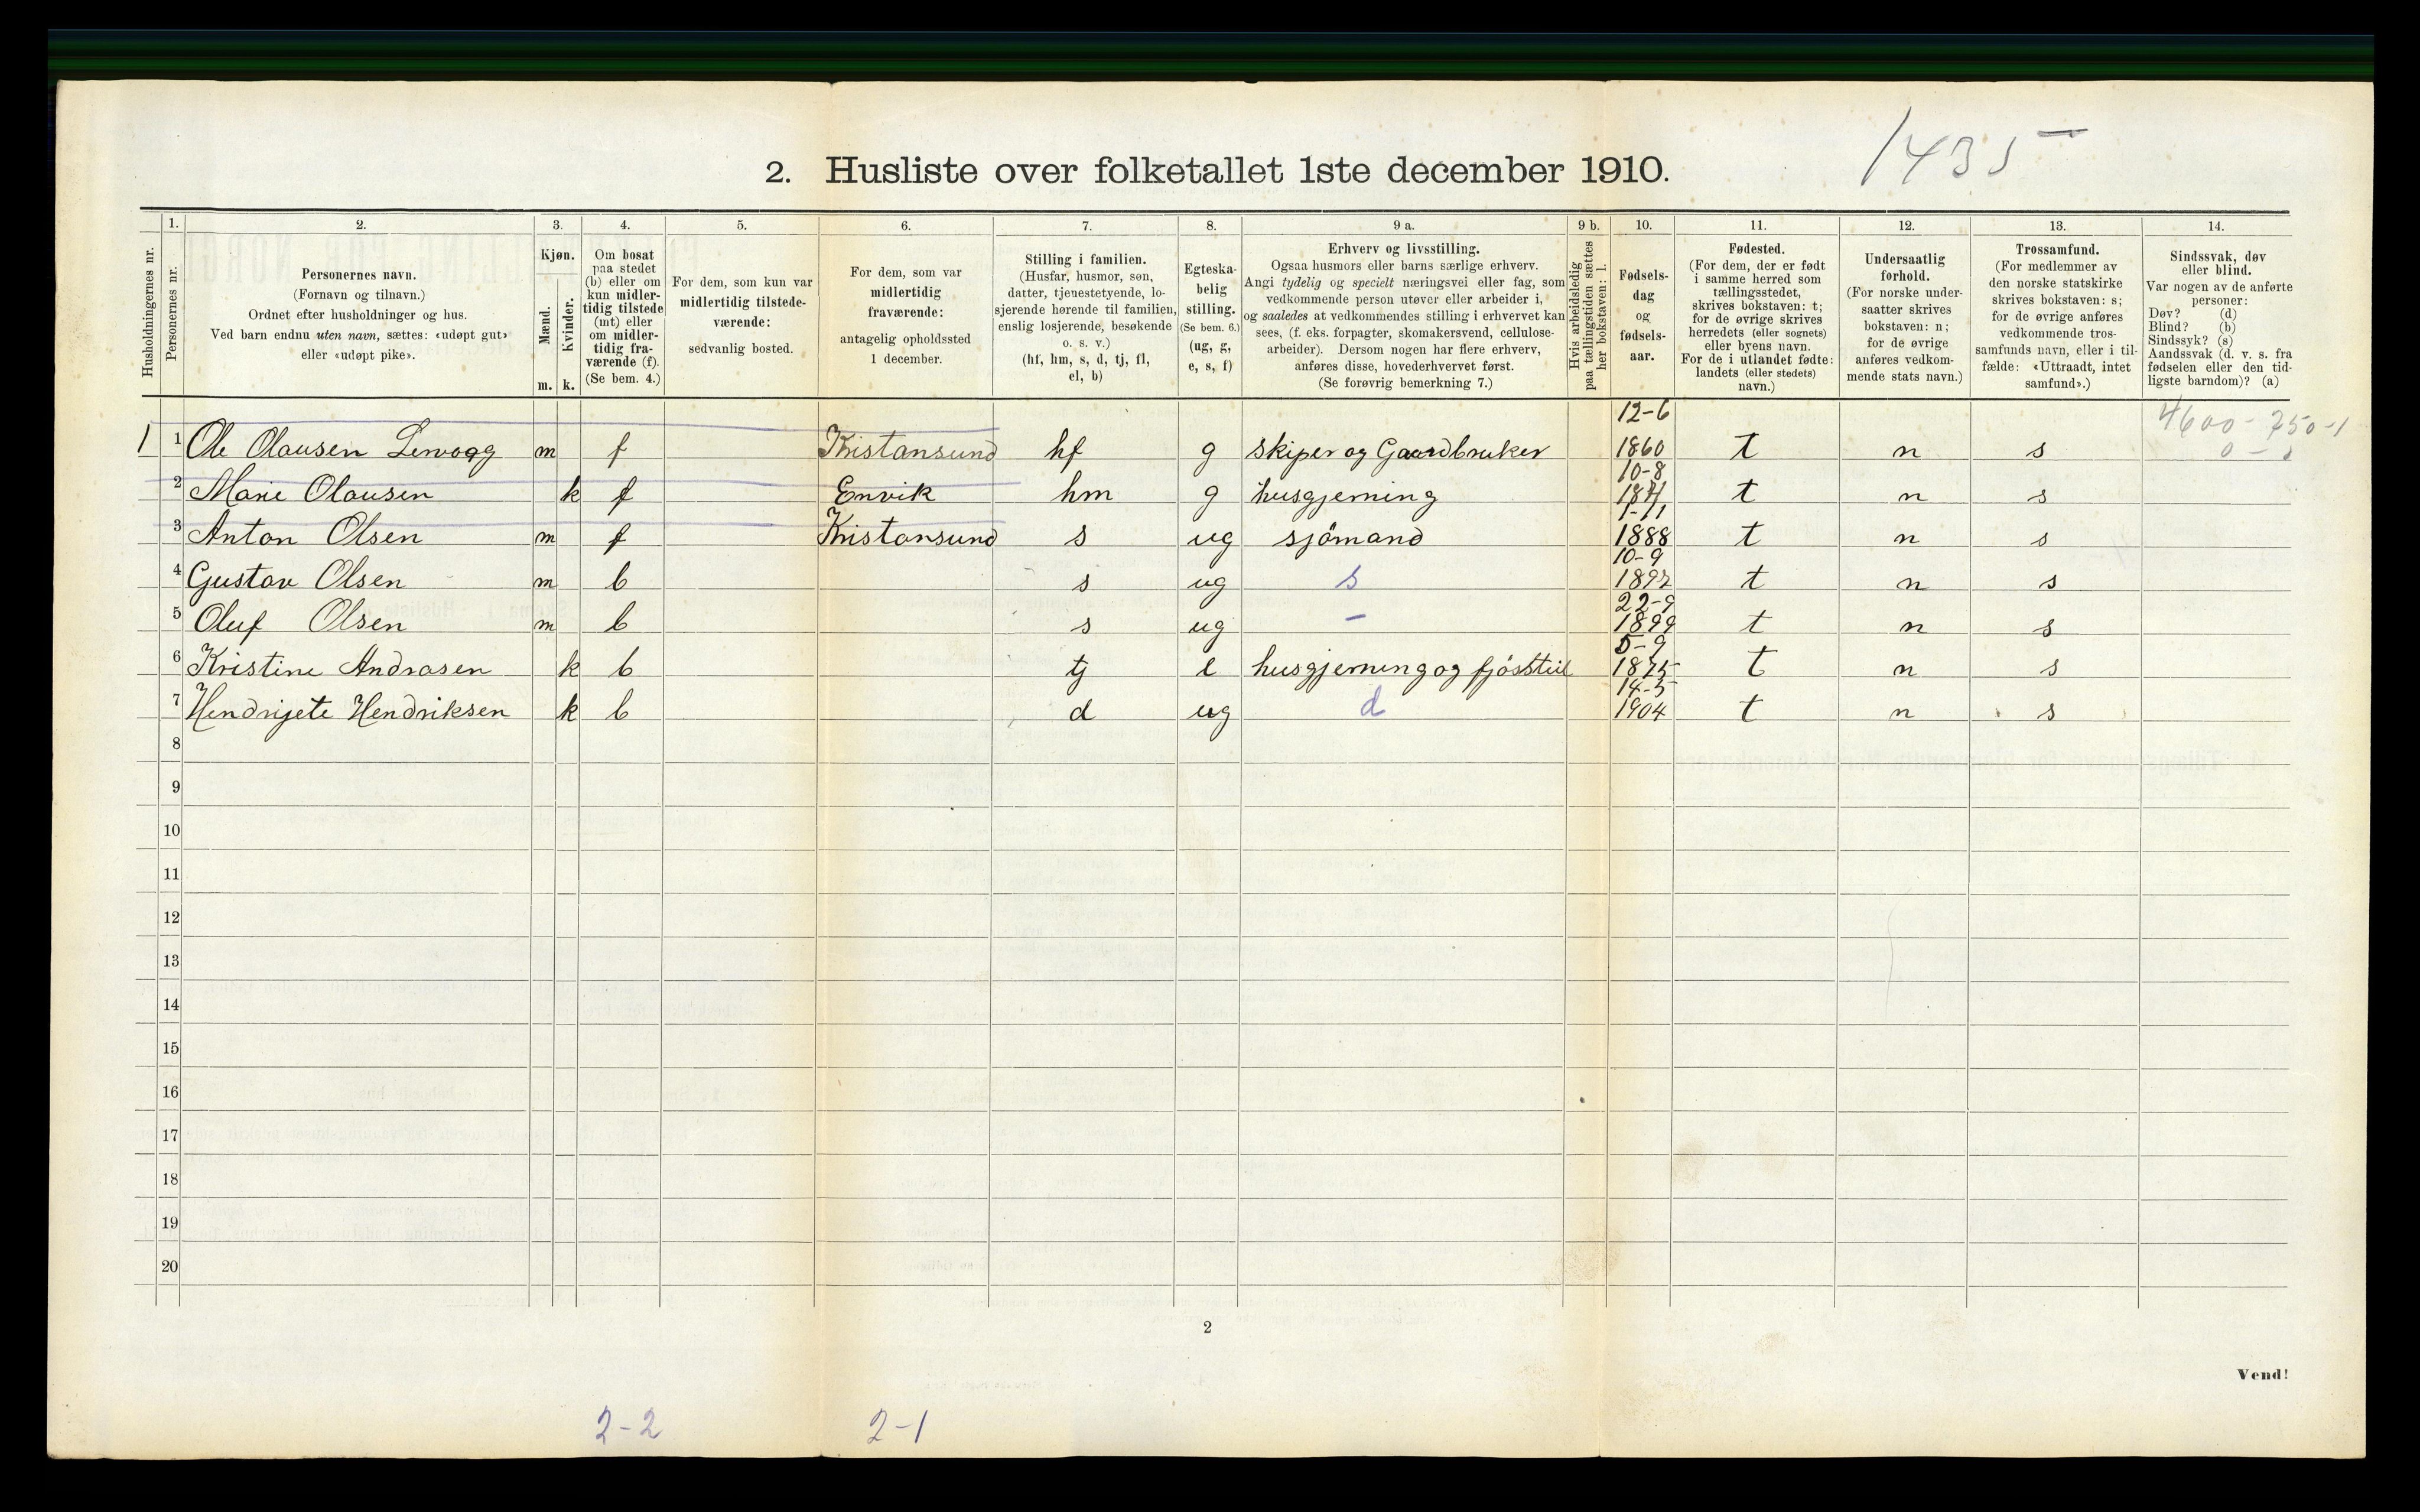 1435
2. Husliste over folketallet 1ste december 1910.
Husholdningernes nr.
1. Personernes nr.
2. Personernes navn.
(Fornavn og tilnavn.)
Ordnet efter husholdninger og hus.
Ved barn endnu uten navn, sættes: «udøpt gut»
eller «udøpt pike».
3. Kjøn.
Mænd. Kvinder.
m. k.
4. Om bosat
paa stedet
(b) eller om
kun midler-
tidig tilstede
(mt) eller
om midler-
tidig fra-
værende (f).
(Se bem. 4.)
5. For dem, som kun var
midlertidig tilstede-
værende:
sedvanlig bosted.
6. For dem, som var
midlertidig
fraværende:
antagelig opholdssted
1 december.
7. Stilling i familien.
(Husfar, husmor, søn,
datter, tjenestetyende, lo-
sjerende hørende til familien,
enslig losjerende, besøkende
o. s. v.)
(hf, hm, s, d, tj, fl,
el, b)
8. Egteska-
belig
stilling.
(Se bem. 6.)
(ug, g,
e, s, f)
9 a. Erhverv og livsstilling.
Ogsaa husmors eller barns særlige erhverv.
Angi tydelig og specielt næringsvei eller fag, som
vedkommende person utøver eller arbeider i,
og saaledes at vedkommendes stilling i erhvervet kan
sees, (f. eks. forpagter, skomakersvend, cellulose-
arbeider). Dersom nogen har flere erhverv,
anføres disse, hovederhvervet først.
(Se forøvrig bemerkning 7.)
9 b. Hvis arbeidsledig
paa tællingstiden sættes
her bokstaven: l.
10. Fødsels-
dag
og
fødsels-
aar.
11. Fødested.
(For dem, der er født
i samme herred som
tællingsstedet,
skrives bokstaven: t;
for de øvrige skrives
herredets (eller sognets)
eller byens navn.
For de i utlandet fødte:
landets (eller stedets)
navn.)
12. Undersaatlig
forhold.
(For norske under-
saatter skrives
bokstaven: n;
for de øvrige
anføres vedkom-
mende stats navn.)
13. Trossamfund.
(For medlemmer av
den norske statskirke
skrives bokstaven: s;
for de øvrige anføres
vedkommende tros-
samfunds navn, eller i til-
fælde: «Uttraadt, intet
samfund».)
14. Sindssvak, døv
eller blind.
Var nogen av de anførte
personer:
Døv? (d)
Blind? (b)
Sindssyk? (s)
Aandssvak (d. v. s. fra
fødselen eller den tid-
ligste barndom)? (a)
4600-750-1
1 1 Ole Olausen Lervaag m f Kristansund hf g skiper og Gaardbruker 12-6 1860 t n s
2 Marie Olausen k f Envik hm g husgjerning 10-8 1871 t n s
3 Anton Olsen m f Kristansund s ug sjömand 1-11 1888 t n s
4 Gustav Olsen m b s ug s 10-9 1892 t n s
5 Oluf Olsen m b s ug - 22-9 1899 t n s
6 Kristine Andrasen k b tj e husgjerning og fjösstel 5-9 1875 t n s
7 Hendrijete Hendriksen k b d ug d 14-5 1904 t n s
8
9
10
11
12
13
14
15
16
17
18
19
20
2
Vend!
2-2 2-1